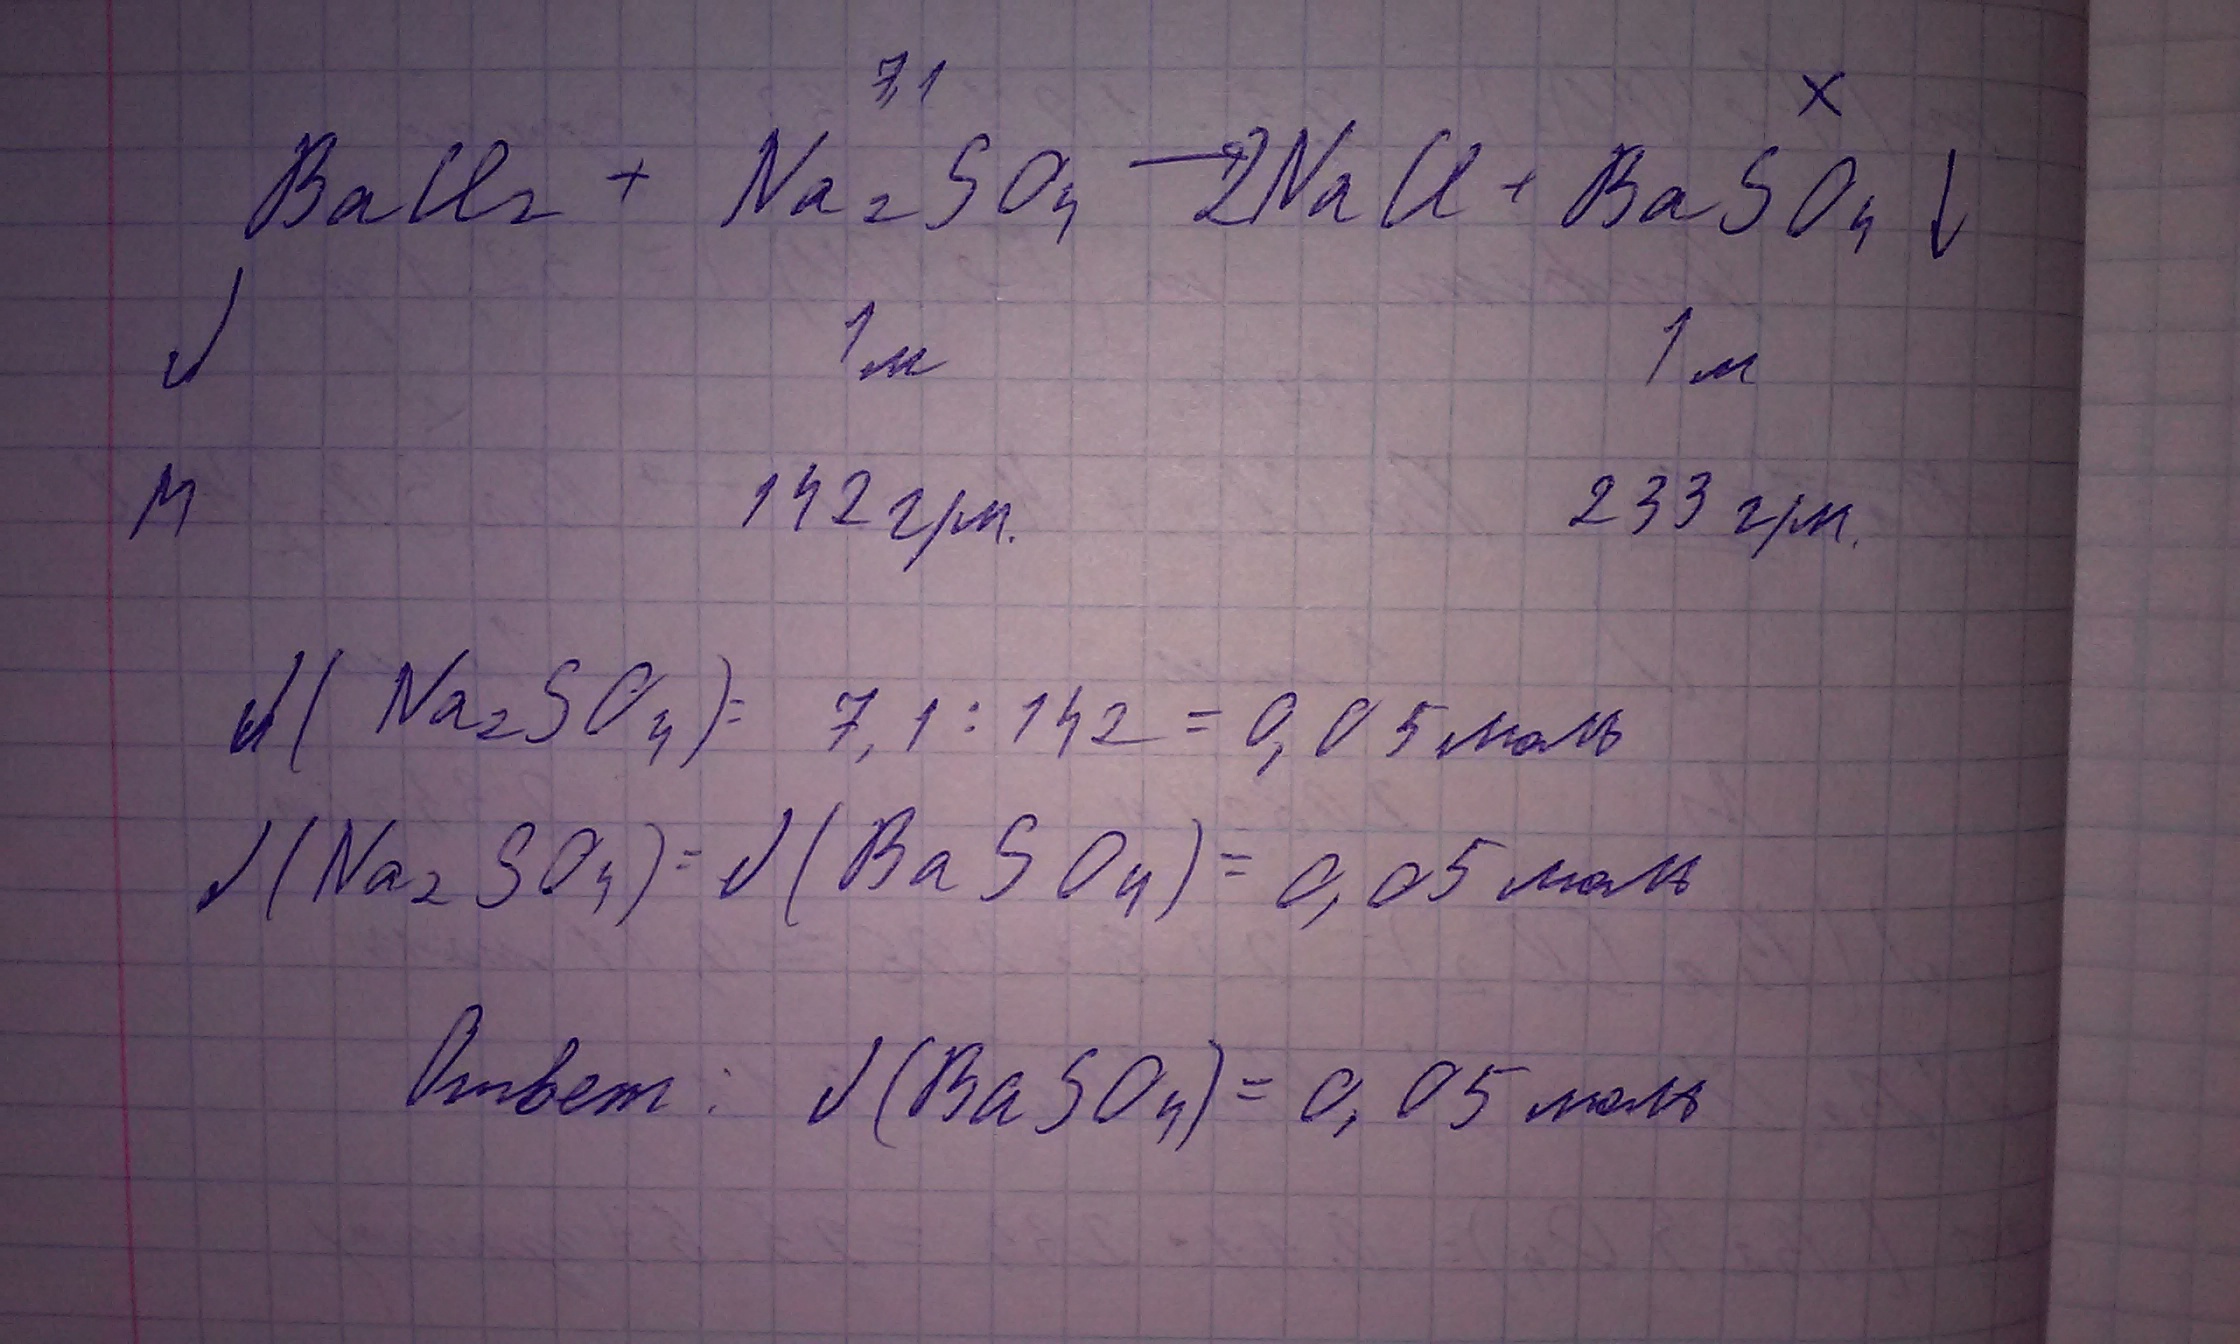 7,1 x
BaCl₂ + Na₂SO₄ → 2NaCl + BaSO₄ ↓
ν 1м 1м
M 142 грм. 233 грм.
ν( Na₂SO₄) = 7,1 : 142 = 0,05 моль
ν(Na₂SO₄) = ν(BaSO₄) = 0,05 моль
Ответ: ν(BaSO₄) = 0,05 моль